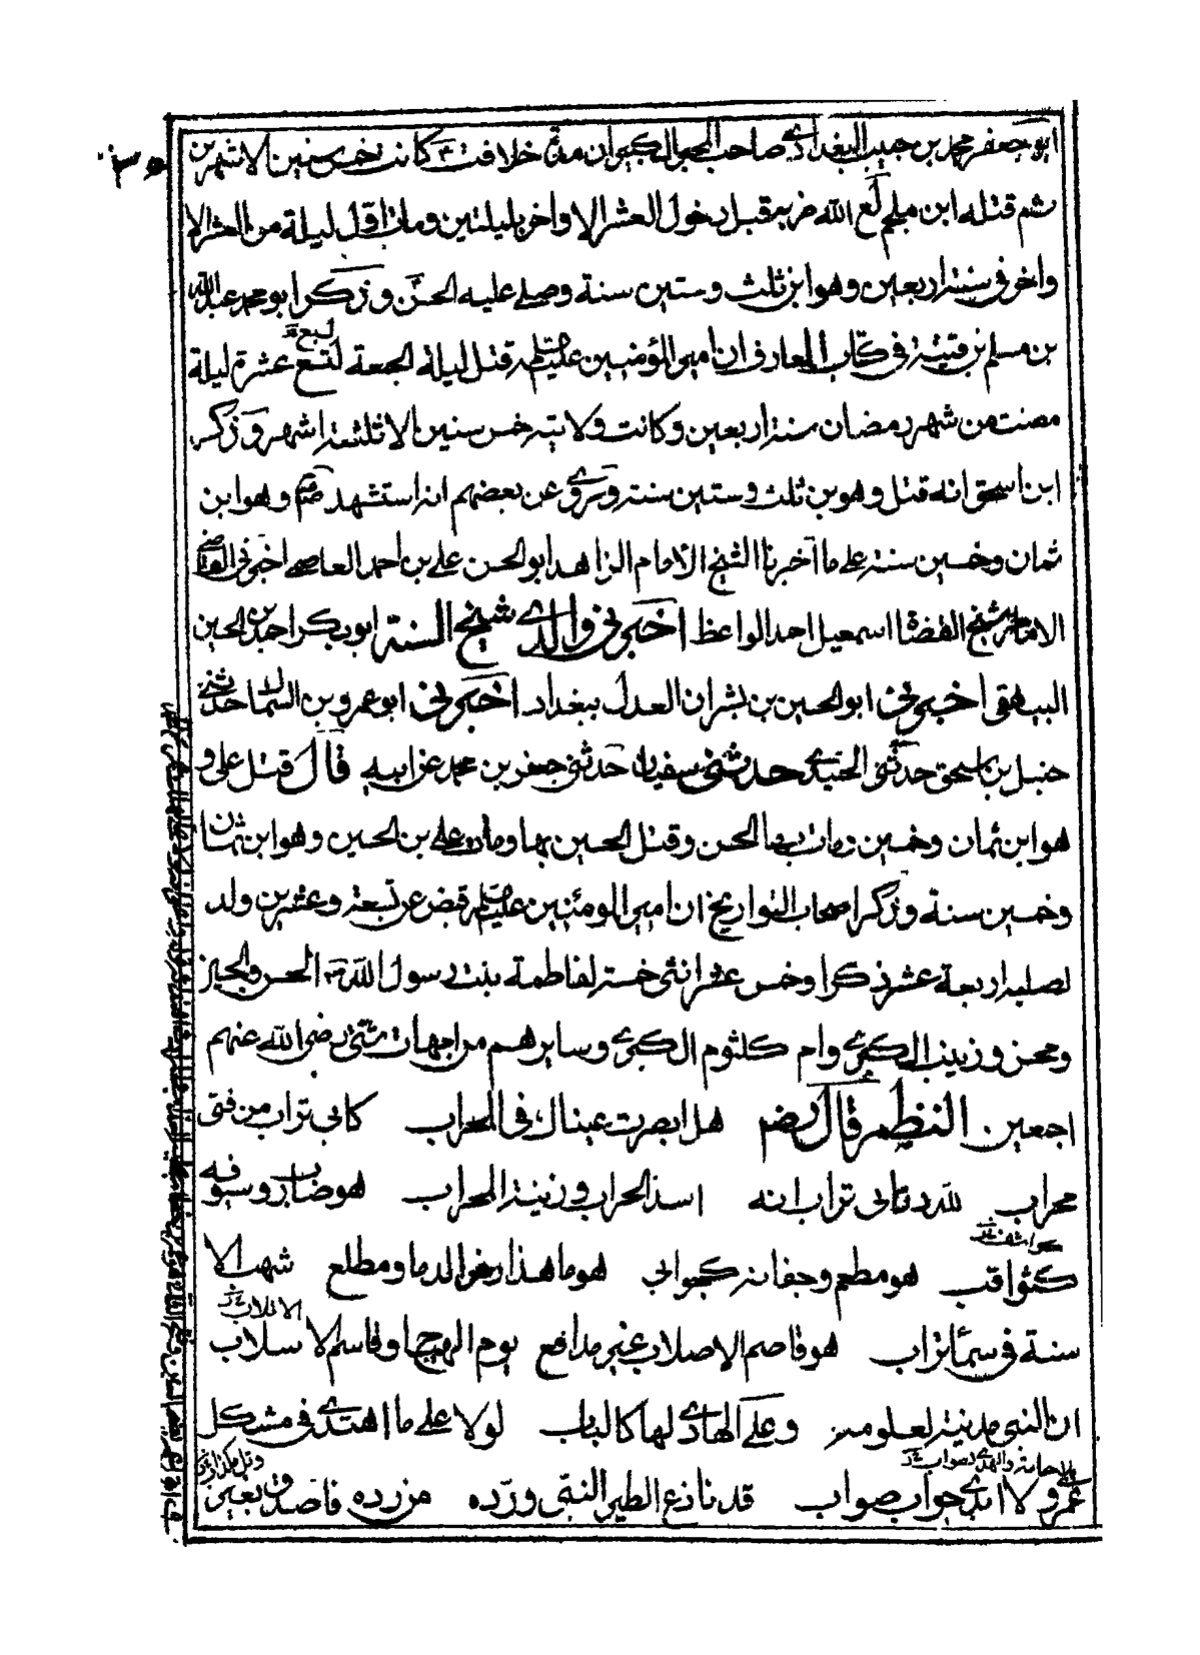 ابو جعفر محمد بن حبيب البغدادي صاحب المحبر الكبير ان مدة خلافته كانت خمس سنين الا شهرين
ثم قتله ابن ملجم لع الله ضربه قبل دخول العشر الاواخر بليلتين ومات اول ليلة من العشر الا
واخر في سنة اربعين وهو ابن ثلث وستين سنة وصلى عليه الحسن وذكر ابو محمد عبد الله
بن مسلم بن قتيبة في كتاب المعارف ان امير المؤمنين عليه قتل ليلة الجمعة لتسع عشرة ليلة
لسبع
مضت من شهر رمضان سنة اربعين وكانت ولايته خمس سنين الا ثلثة اشهر وذكر
ابن اسحق انه قتل وهو بن ثلث وستين سنة وروي عن بعضهم انه استشهد وهو ابن
ثمان وخمسين سنة على ما اخبرنا الشيخ الامام الزاهد ابو الحسن علي بن احمد العاصمي اخبرني القاضي
الامام شيخ القضاة اسمعيل احمد الواعظ اخبرني والدي شيخ السنة ابو بكر احمد بن الحسين
البيهقي اخبرني ابو الحسين بن بشران العدل ببغداد اخبرني ابو عمرو بن السماك حدثني
حنبل بن اسحق حدثني الحميدي حدثني سفيان حدثني جعفر بن محمد عن ابيه قال قتل علي و
هو ابن ثمان وخمسين ومات بها الحسن وقتل الحسين بها ومات علي بن الحسين وهو ابن ثمان
وخمسين سنة وذكر اصحاب التواريخ ان امير المومنين عليه قبض عن تسعة وعشرين ولد
لصلبه اربعة عشر ذكرا وخمس عشر انثى خمسة لفاطمة بنت رسول الله الحسن والحسين
ومحسن وزينب الكبرى وام كلثوم الكبرى وسايرهم من امهات شتى رضي الله عنهم
اجمعين النظم قال رضه هل ابصرت عيناك في المحراب كابي تراب من فتى
محراب لله در ابي تراب انه اسد الحراب وزينة المحراب هو ضارب وسيوفه
كثواقب هو مطعم وجفانه كجوابي هو ماهد ارض الدما ومطلع شهب الا
سنة في سماء تراب هو قاصم الاصلاب غير مدافع يوم الهياج وقاسم الاسلاب
ان النبي مدينة لعلومه وعلي الهادي لها كالباب لولا علي ما اهتدى في مشكل
عمر ولا ابدى جواب صواب قد نازع الطير النبي ورده من رده فاصدق بغير